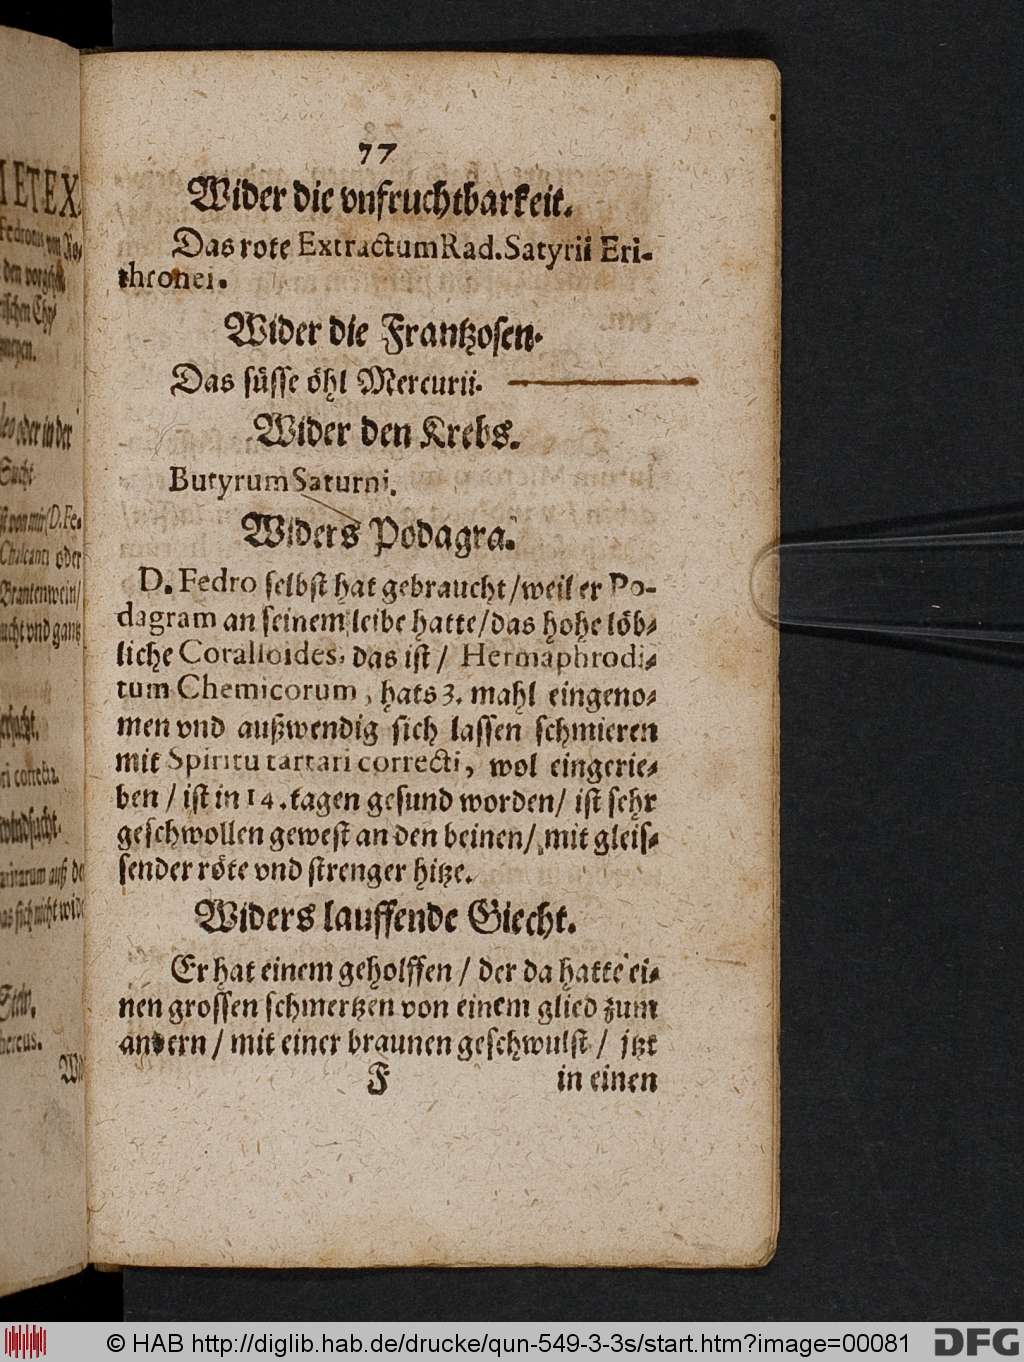 77
Wider die vnfruchtbarkeit.
Das rote Extractum Rad. Satyrii Eri-
thronei.
Wider die Frantzosen.
Das süsse öhl Mercurii.
Wider den Krebs.
Butyrum Saturni.
Widers Podagra.
D. Fedro selbst hat gebraucht / weil er Po-
dagram an seinem leibe hatte / das hohe löb-
liche Coralloides, das ist / Hermaphrodi-
tum Chemicorum, hats 3. mahl eingeno-
men vnd außwendig sich lassen schmieren
mit Spiritu tartari correcti, wol eingerie-
ben / ist in 14. tagen gesund worden / ist sehr
geschwollen gewest an den beinen / mit gleis-
sender röte vnd strenger hitze.
Widers lauffende Giecht.
Er hat einem geholffen / der da hatte ei-
nen grossen schmertzen von einem glied zum
andern / mit einer braunen geschwulst / jtzt
F in einen
METEX.
Fedronis von Ro-
oder in der
Sucht
von mir (D. Fe-
Chalcanti oder
Brantenwein /
vnd gantz
auß de
nicht wide
Wi
© HAB http://diglib.hab.de/drucke/qun-549-3-3s/start.htm?image=00081
DFG